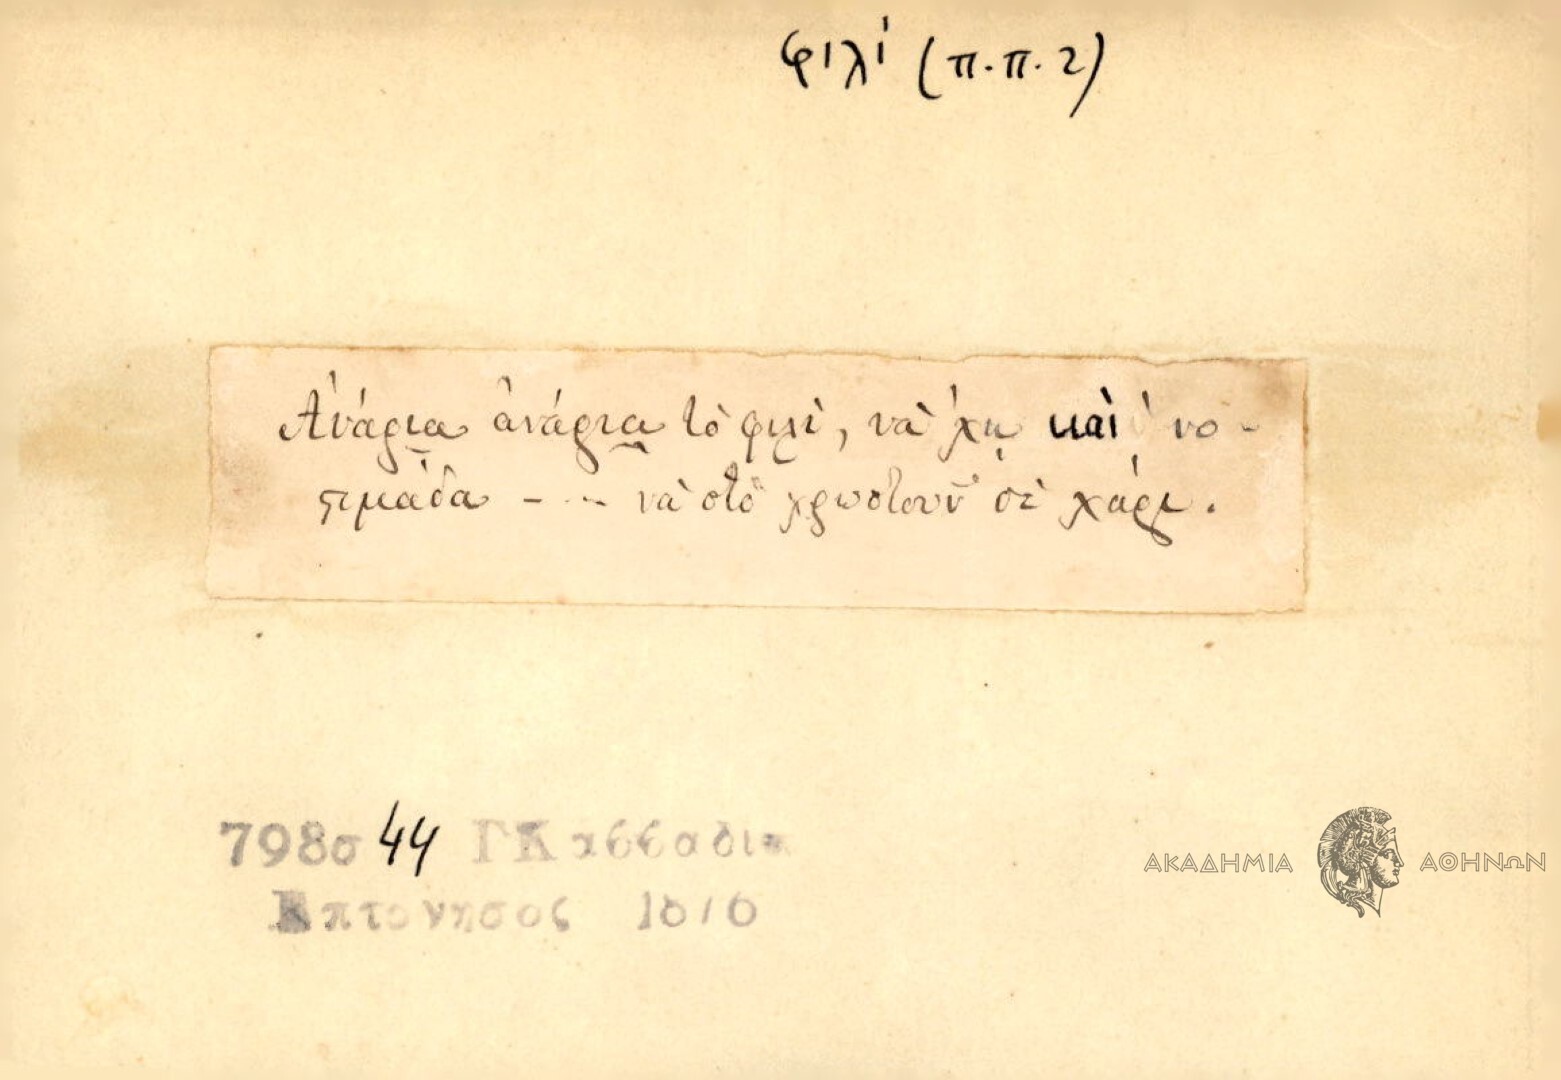 φιλί (π.π. 2)
Ἀνάρια ἀνάρια τὸ φιλὶ, νὰ 'χῃ καὶ νο-
στιμάδα - - - νὰ στὸ χρωστοῦν σὲ χάρι.
798σ 44 ΓΚασσαδια
Επτονησος
ΑΚΑΔΗΜΙΑ ΑΘΗΝΩΝ